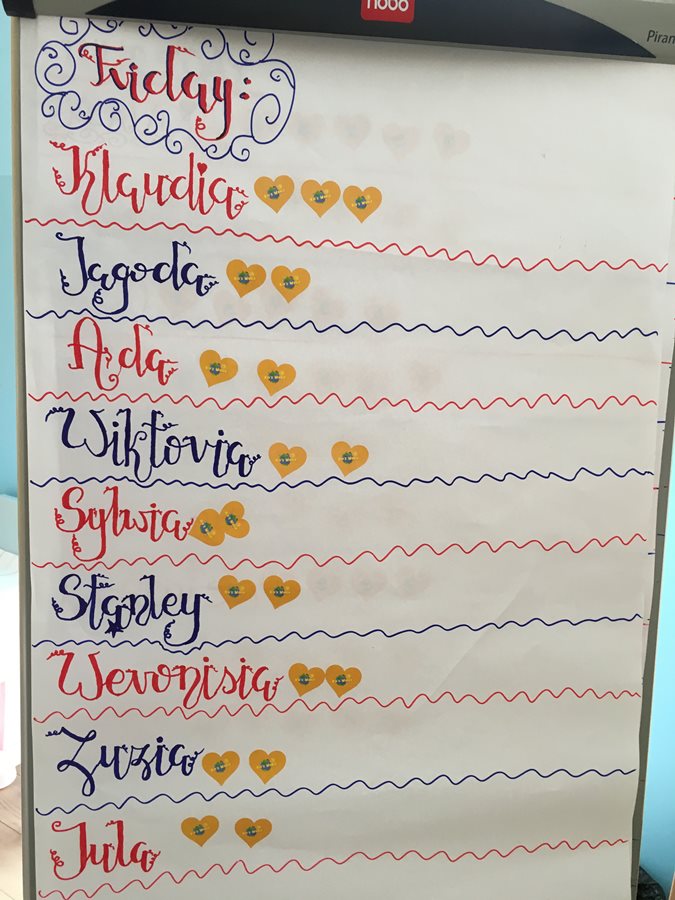 nobo
Piran
Friday:
Klaudia
Jagoda
Ada
Wiktoria
Sylwia
Stanley
Weronisia
Zuzia
Jula